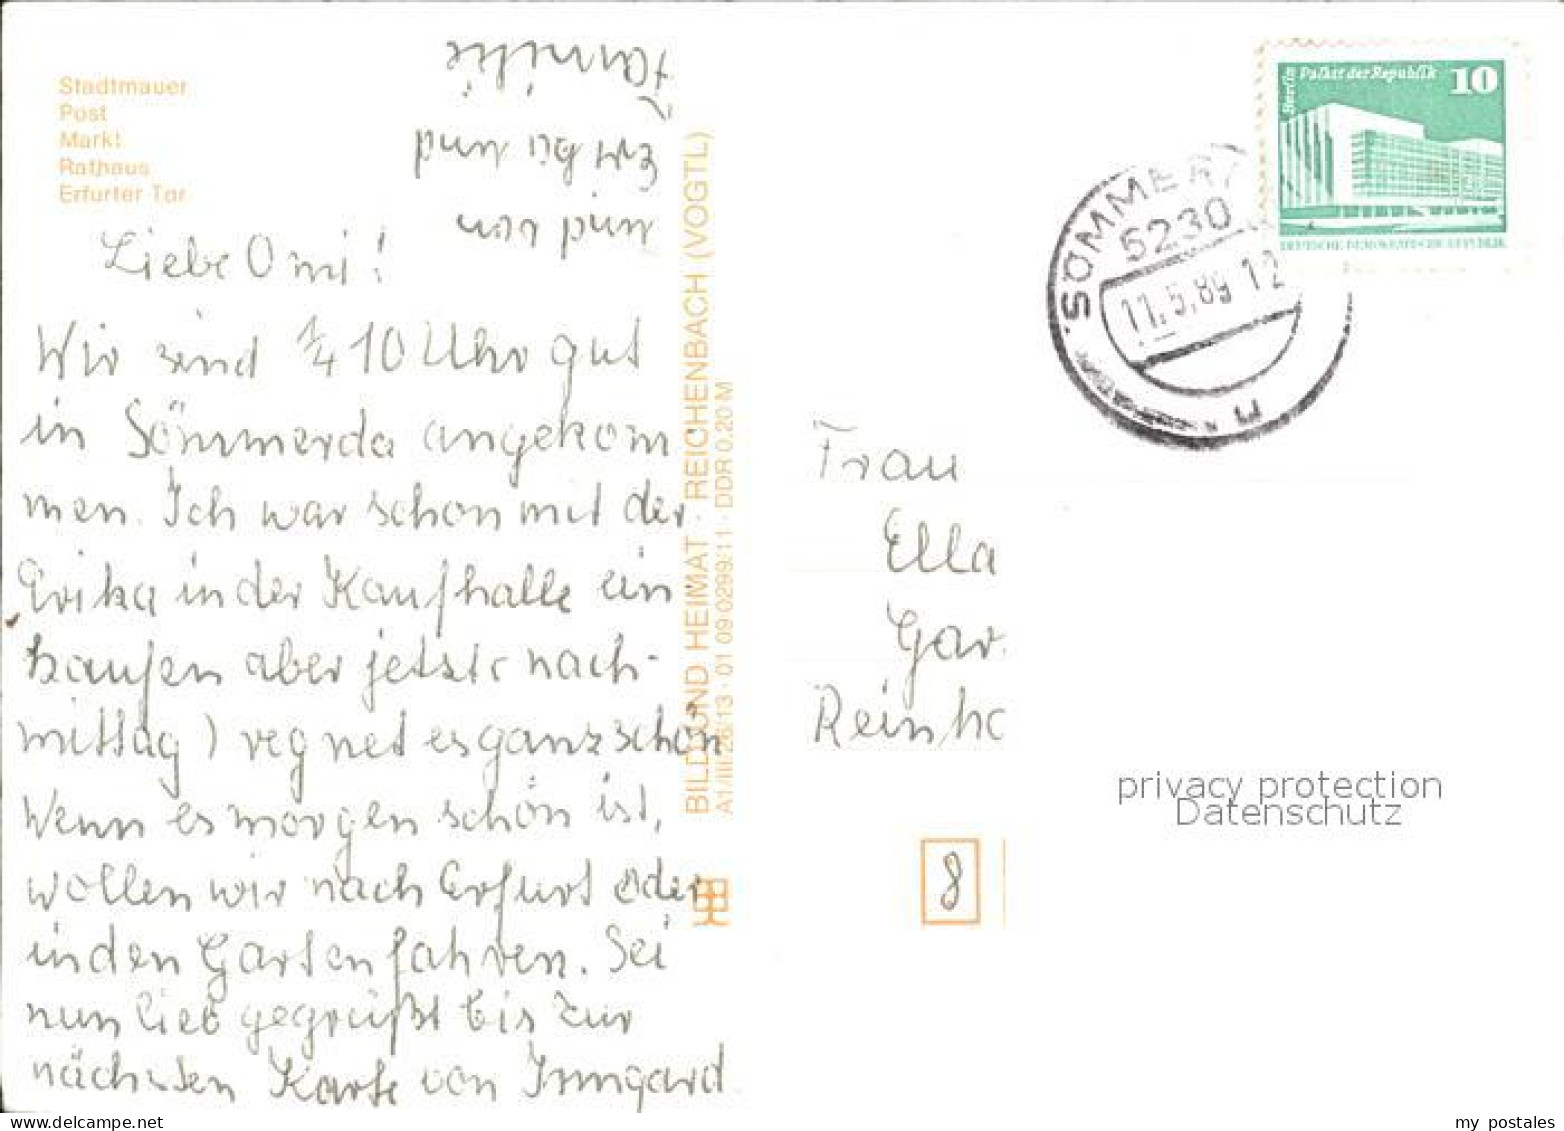 Stadtmauer
Post
Markt
Rathaus
Erfurter Tor
Liebe Omi!
Wir sind 1/4 10 Uhr gut
in Sömmerda angekom
men. Ich war schon mit der
Erika in der Kaufhalle ein
kaufen aber jetzt( nach-
mittag) regnet es ganz schön
Wenn es morgen schön ist,
wollen wir nach Erfurt oder
in den Garten fahren. Sei
nun lieb gegrüßt bis zur
nächsten Karte von Irmgard
und von
Erika und
Familie
BILD UND HEIMAT · REICHENBACH (VOGTL)
A1/III/26/13 · 01 09 0299/11 · DDR 0.20 M
Berlin Palast der Republik 10
DEUTSCHE DEMOKRATISCHE REPUBLIK
SÖMMER
5230
11.5.89 12
Frau
Ella
Gar
Reinh
privacy protection
Datenschutz
8
my postales